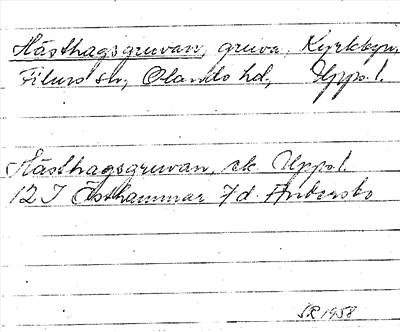 Hästhagsgruvan, gruva. Kyrkbyn.
Films sn, Olands hd, Upps. l.
Hästhagsgruvan, ek. Upps l.
12 I Östhammar 7 d. Andersbo
SR 1958